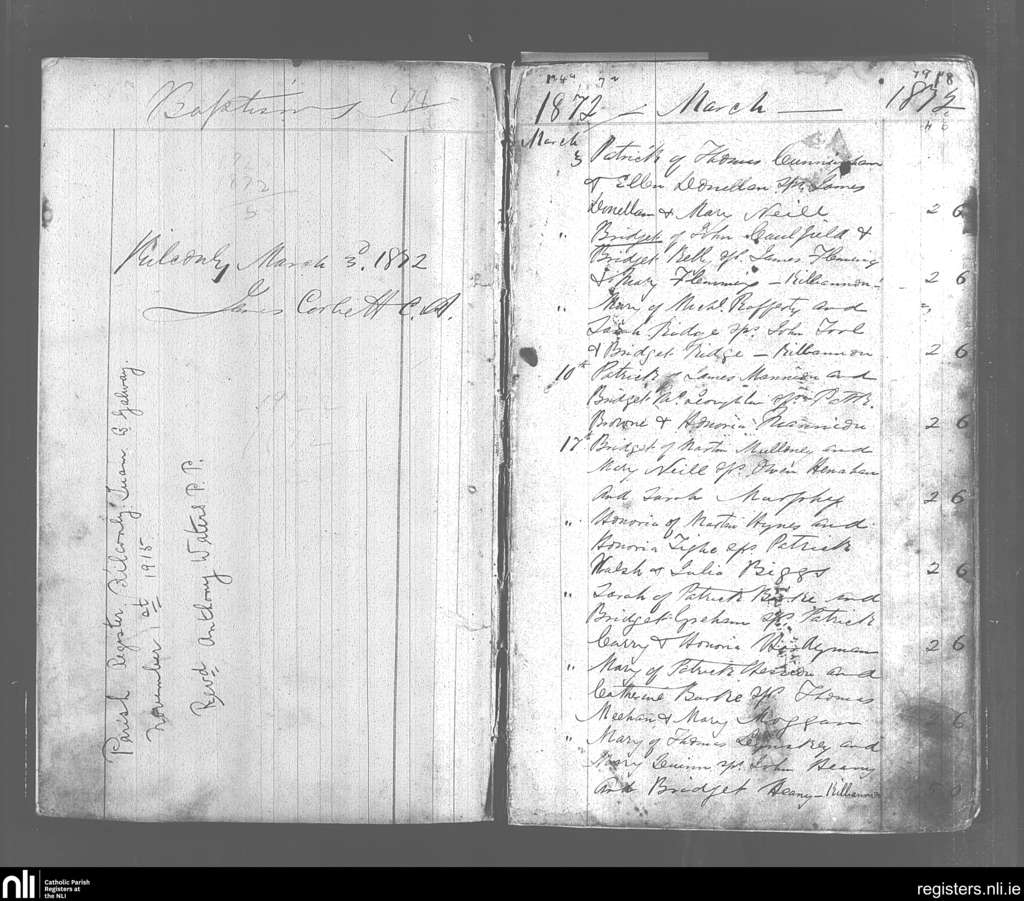 Baptisms 1872
Kilconly March 3d. 1872
James Corbett C.A.
Parish Register, Kilconly Tuam Co Galway.
November 1st 1915
Revd Anthony Waters P.P.
1872 — March — 1872
March
3 Patrick of Thomas Cunningham
& Ellen Donellan sps. James
Donellan & Mary Neill 2 6
" Bridget of John Caulfield &
Bridget Kell sps. James Fleming
& Mary Flemming — Kilbannon 2 6
" Mary of Michl. Rafferty and
Sarah Ridge sps. John Tool
& Bridget Ridge — Kilbannon 2 6
10th Patrick of James Mannion and
Bridget McLoughlin sps. Pattk.
Browne & Honoria Mannion 2 6
17th Bridget of Martin Mulloney and
Mary Neill sps. Owen Henahan
and Sarah Murphy 2 6
" Honoria of Martin Hynes and
Honoria Tighe sps Patrick
Walsh & Julia Biggs 2 6
" Sarah of Patrick Burke and
Bridget Graham sps. Patrick
Carry & Honoria 2 6
" Mary of Patrick Hession and
Catherine Burke sps. Thomas
Meehan & Mary Moggan 2 6
" Mary of Thomas Comskey and
Mary Quinn sps. John Heany
and Bridget Heany — Kilbannon
nli
Catholic Parish
Registers at
the NLI
registers.nli.ie